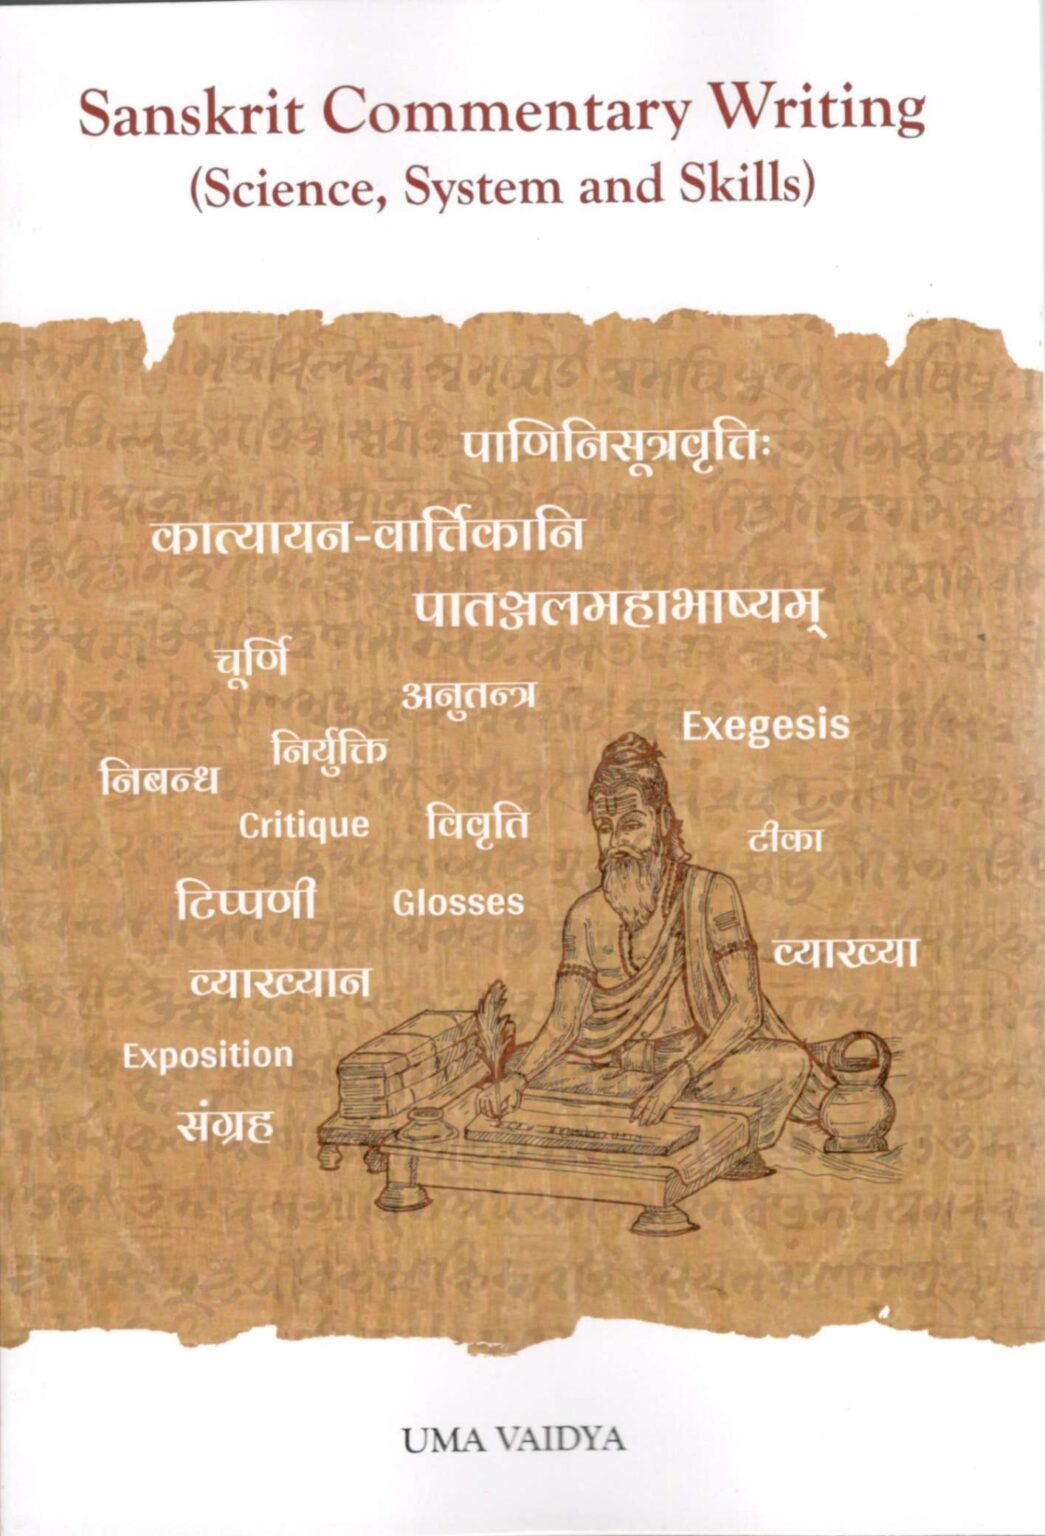 Sanskrit Commentary Writing
(Science, System and Skills)
पाणिनिसूत्रवृत्तिः
कात्यायन-वार्त्तिकानि
पातञ्जलमहाभाष्यम्
चूर्णि
अनुतन्त्र
Exegesis
निर्युक्ति
निबन्ध
Critique
विवृति
टीका
टिप्पणी
Glosses
व्याख्या
व्याख्यान
Exposition
संग्रह
UMA VAIDYA